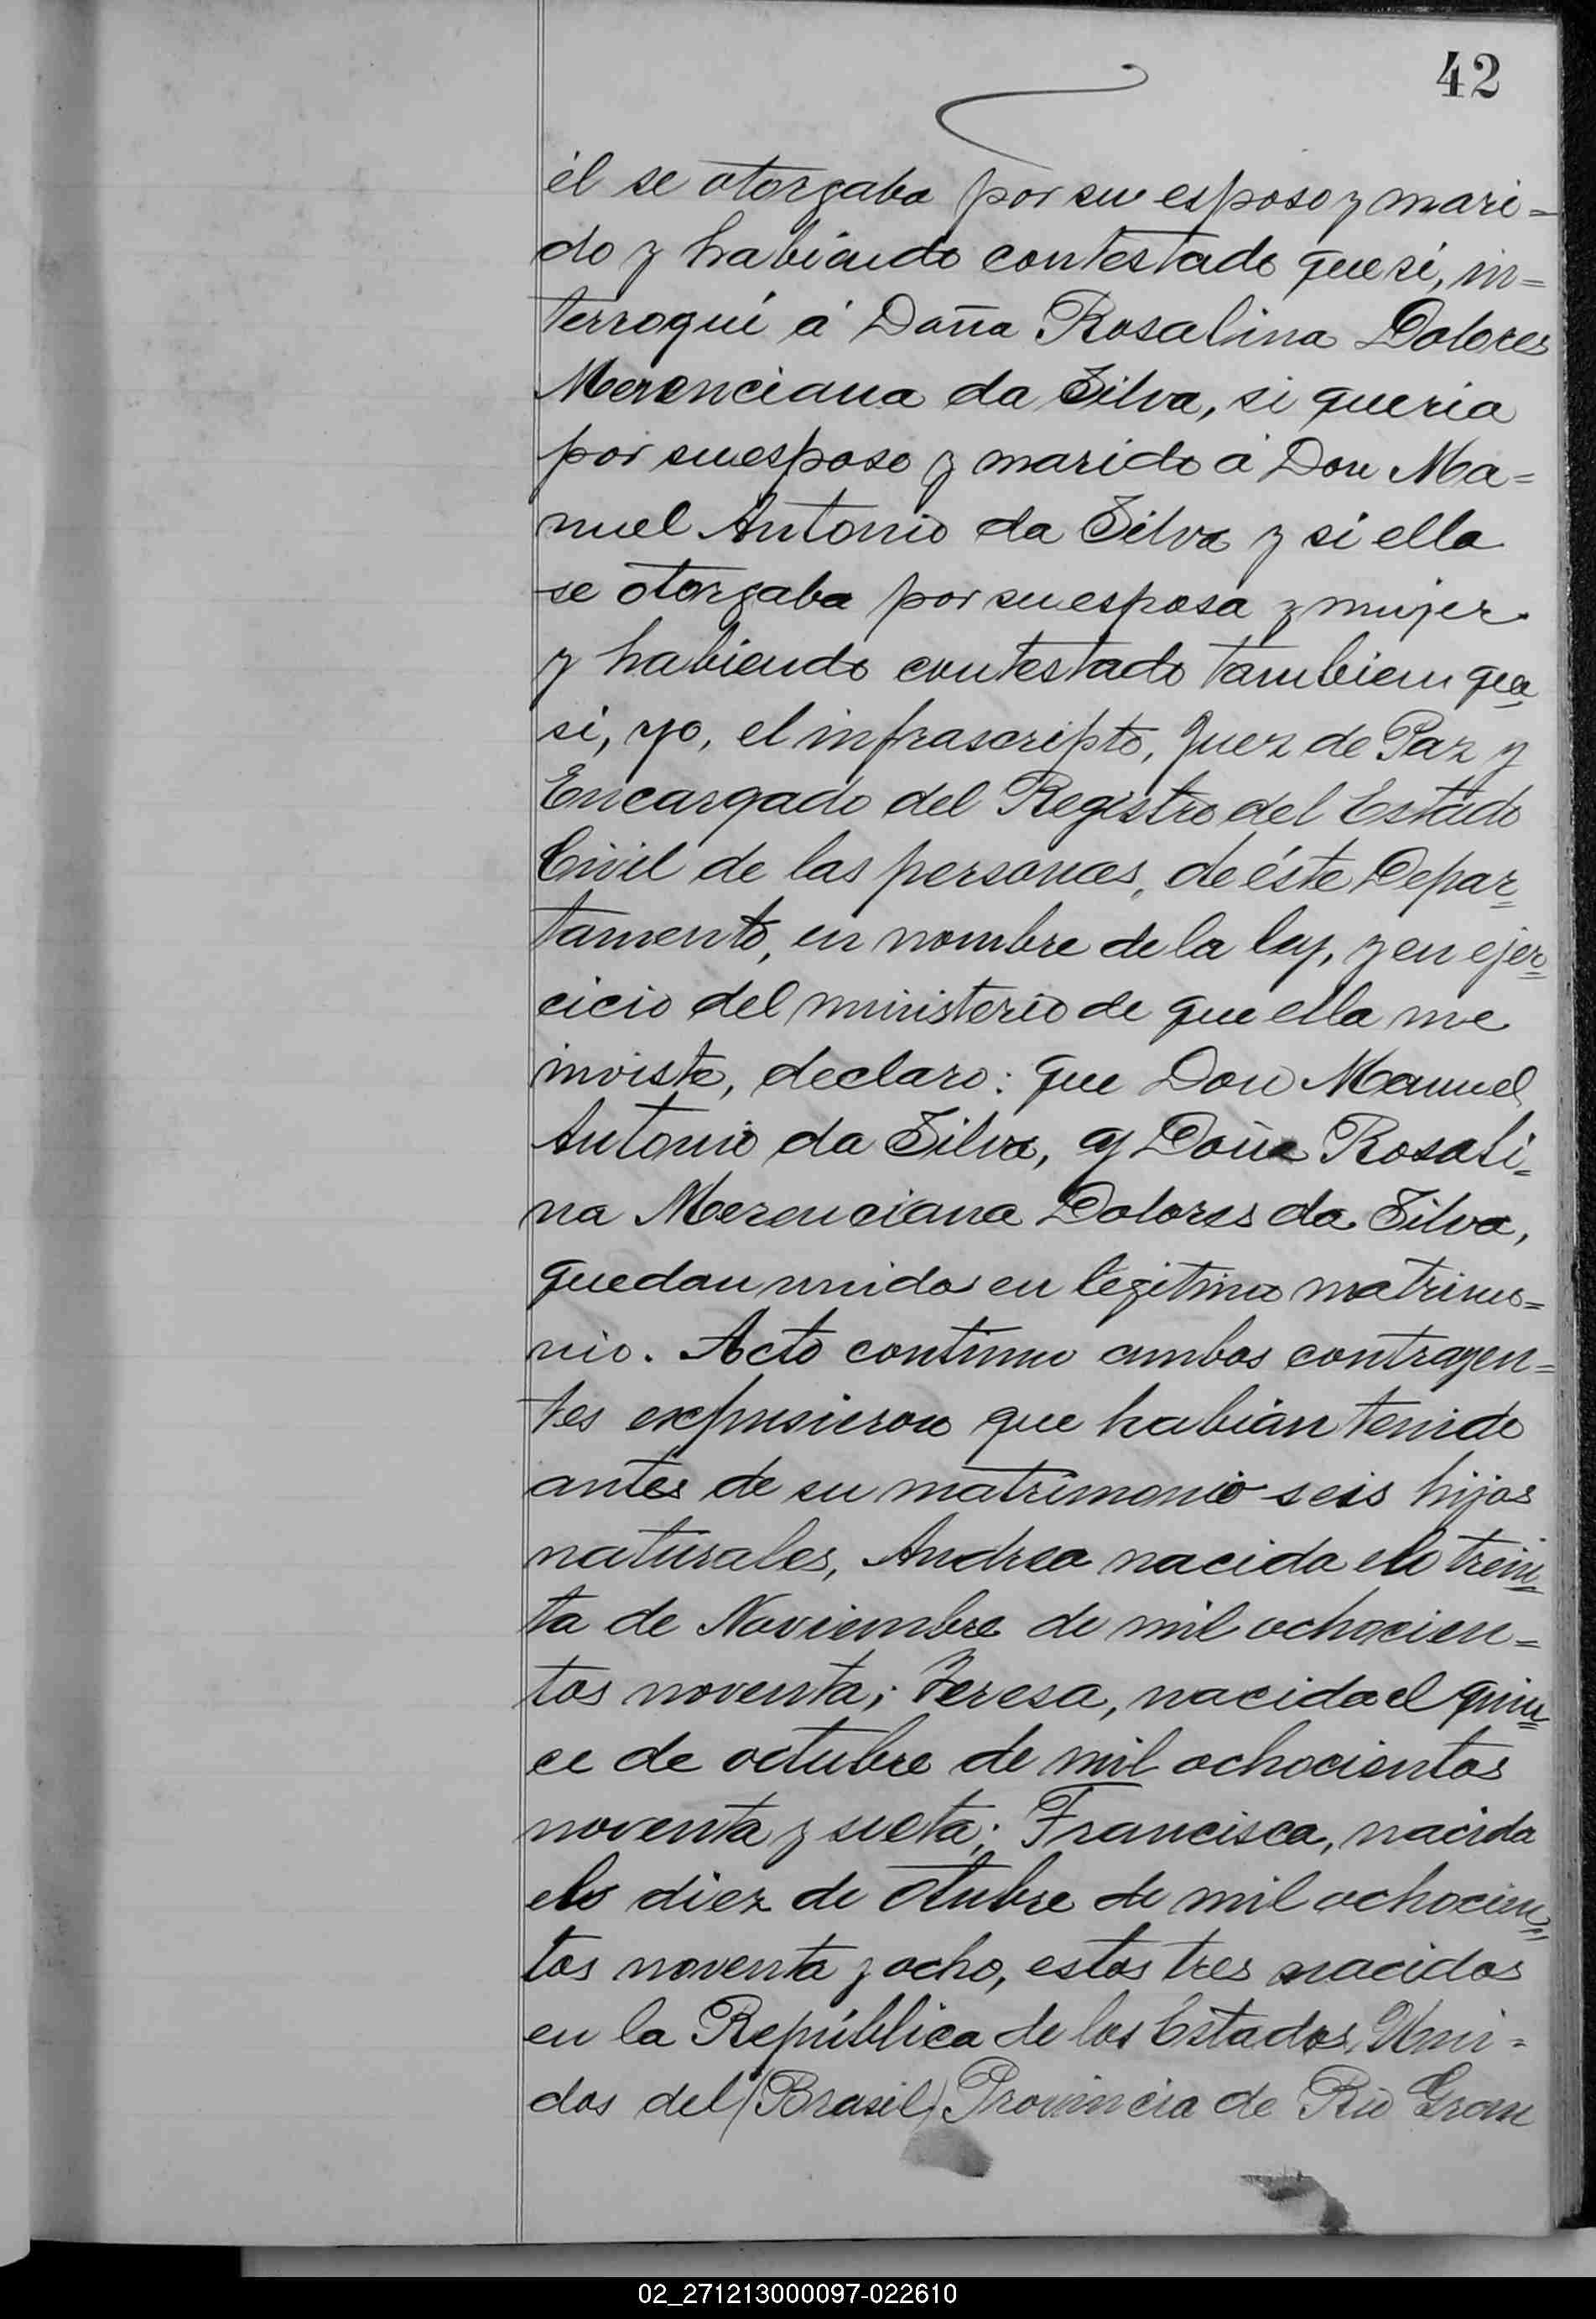 42
él se otorgaba por su esposo y mari=
do y habiendo contestado que si, in=
terrogué á Doña Rosalina Dolores
Merenciana da Silva, si queria
por su esposo y marido á Don Ma=
nuel Antonio da Silva y si ella
se otorgaba por su esposa y mujer
y habiendo contestado tambien que
si, yo, el infrascripto, Juez de Paz y
Encargado del Registro del Estado
Civil de las personas, de éste Depar=
tamento, en nombre de la ley, y en ejer=
cicio del ministerio de que ella me
inviste, declaro: que Don Manuel
Antonio da Silva, y Doña Rosali=
na Merenciana Dolores da Silva,
quedan unidos en legitimo matrimo=
nio. Acto continuo ambos contrayen=
tes expusieron que habian tenido
antes de su matrimonio seis hijos
naturales, Andrea nacida el trein=
ta de Noviembre de mil ochocien=
tos noventa; Teresa, nacida el quin=
ce de octubre de mil ochocientos
noventa y siete; Francisca, nacida
el diez de Otubre de mil ochocien=
tos noventa y ocho, estos tres nacidos
en la República de los Estados Uni=
dos del (Brasil) Provincia de Rio Gran
02_271213000097-022610